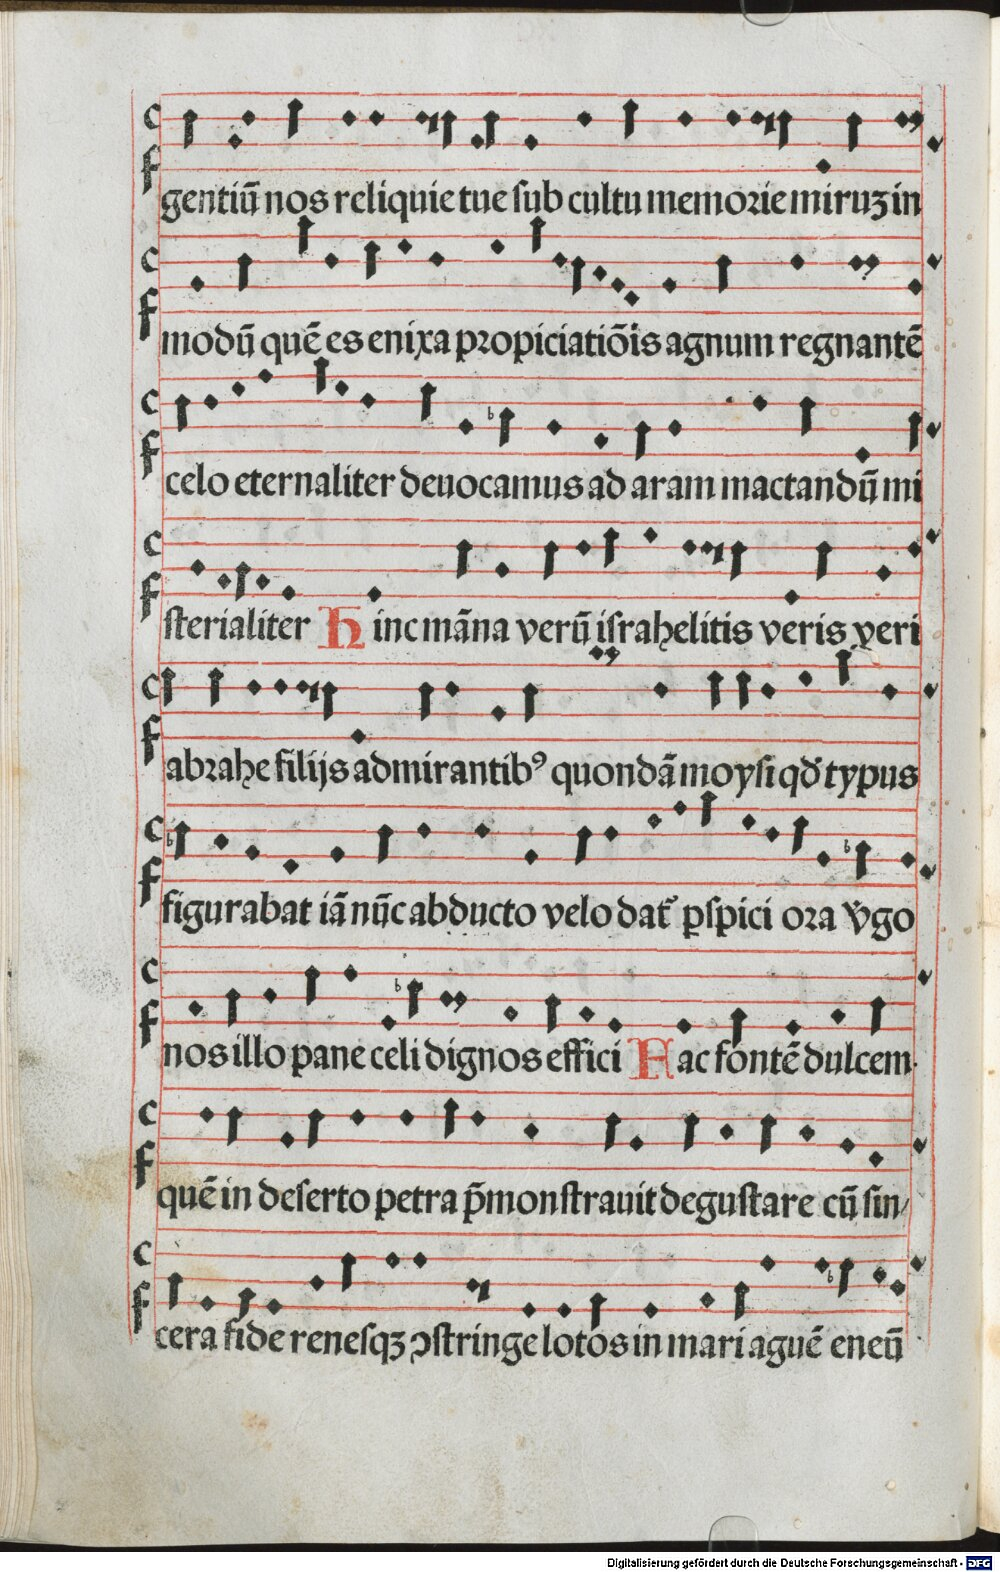 gentiū nos reliquie tue sub cultu memorie miruꝫ in
modū quē es enixa propiciatiōis agnum regnantē
celo eternaliter deuocamus ad aram mactandū mi
sterialiter Hinc māna verū israhelitis veris veri
abrahe filijs admirantibꝰ quondā moysi qđ typus
figurabat iā nūc abducto velo dat᷑ ꝑspici ora v̾go
nos illo pane celi dignos effici Hac fontē dulcem
quē in deserto petra p̄monstrauit degustare cū sin/
cera fide renesqꝫ ꝯstringe lotos in mari aguē eneū
Digitalisierung gefördert durch die Deutsche Forschungsgemeinschaft - DFG